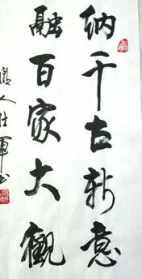 纳千古新意
融百家大觀